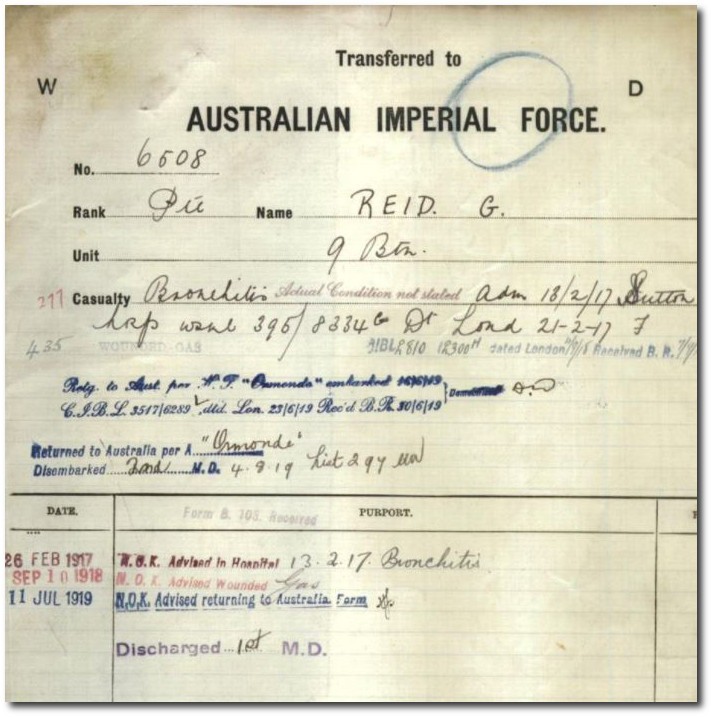 Transferred to
W D
AUSTRALIAN IMPERIAL FORCE.
No. 6508
Rank Pte Name REID. G.
Unit 9 Btn.
277 Casualty Bronchitis Actual Condition not stated adm 13/2/17 Sutton
hosp 395/8334 Dt Lond 21-2-17 F
435 WOUNDED-GAS dated London Received B.R.
Retg. to Aust. per H.T. "Ormonde" embarked 16/6/19
C.I.B.L. 3517/6289 dtd. Lon. 23/6/19 Rec'd B.R. 30/6/19
Returned to Australia per A "Ormonde"
Disembarked 2nd M.D. 4.8.19 List 297
DATE. Form B. 103. Received PURPORT.
26 FEB 1917 N.O.K. Advised in Hospital 13.2.17. Bronchitis
SEP 10 1918 N.O.K. Advised Wounded Gas
11 JUL 1919 N.O.K. Advised returning to Australia Form
Discharged 1st M.D.